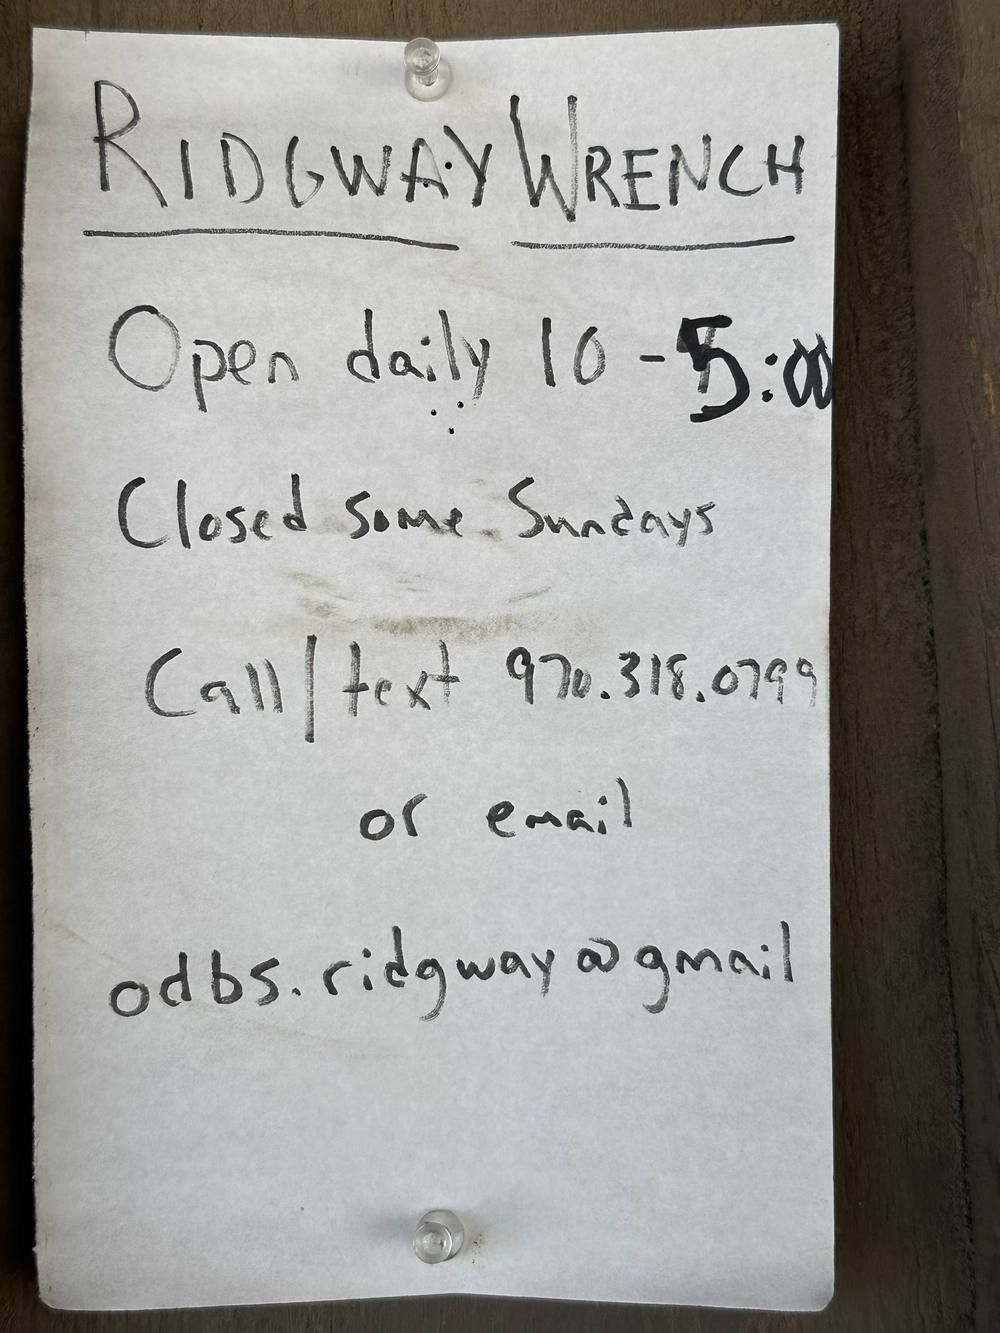 RIDGWAY WRENCH
Open daily 10 - 5:00
Closed some Sundays
Call/text 970.318.0799
or email
odbs.ridgway@gmail